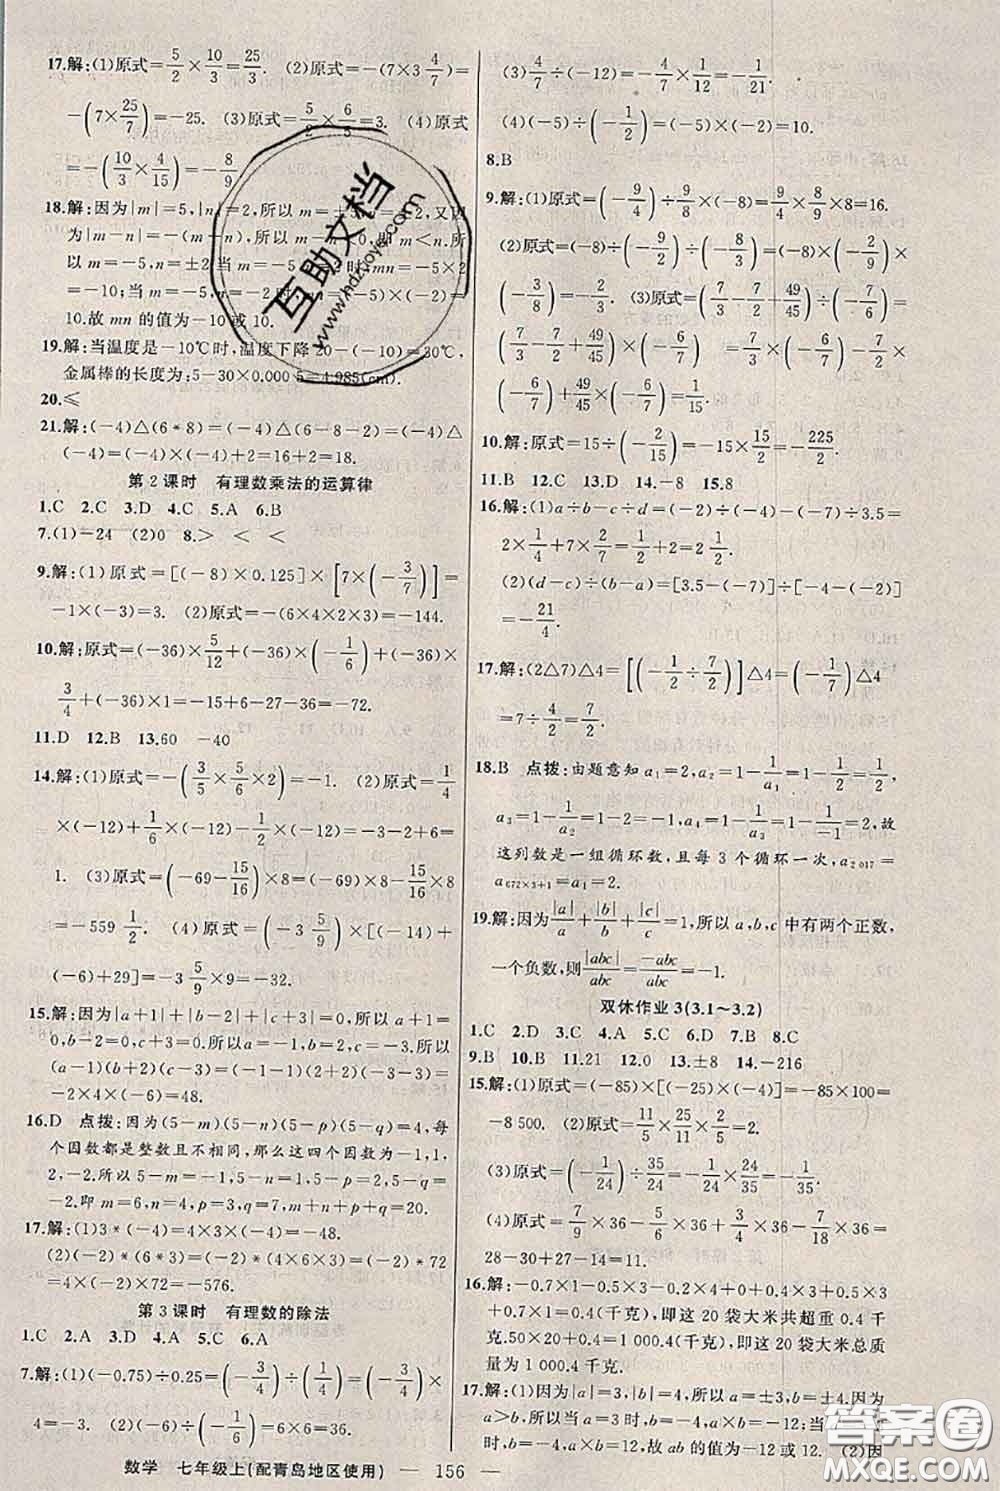 17.解:(1)原式=5/2×10/3=25/3. (2)原式=-(7×3 4/7)=
-(7×25/7)=-25. (3)原式=5/2×6/5=3. (4)原式
=-(10/3×4/15)=-8/9
18.解:因为|m|=5,|n|=2,所以m=±5,n=±2,又因
为|m-n|=-(m-n),所以m-n<0,即m<n.所
以m=-5,n=±2;当m=-5,n=2时,mn=-5×2
=-10;当m=-5,n=-2时,mn=-5×(-2)=
10.故mn的值为-10或10.
19.解:当温度是-10℃时,温度下降20-(-10)=30℃,
金属棒的长度为:5-30×0.000 5=4.985(cm).
20.≤
21.解:(-4)△(6*8)=(-4)△(6-8-2)=(-4)△
(-4)=(-4)×(-4)+2=16+2=18.
第2课时 有理数乘法的运算律
1.C 2.C 3.D 4.C 5.A 6.B
7.(1)-24 (2)0 8.> < <
9.解:(1)原式=[(-8)×0.125]×[7×(-3/7)]=
-1×(-3)=3. (2)原式=-(6×4×2×3)=-144.
10.解:原式=(-36)×5/12+(-36)×(-1/6)+(-36)×
3/4+(-36)×1=-15+6-27-36=-72.
11.D 12.B 13.60 -40
14.解:(1)原式=-(3/5×5/6×2)=-1. (2)原式=1/4
×(-12)+1/6×(-12)-1/2×(-12)=-3-2+6=
1. (3)原式=(-69-15/16)×8=(-69)×8-15/16×8
=-559 1/2. (4)原式=(-3 5/9)×[(-14)+
(-6)+29]=-3 5/9×9=-32.
15.解:因为|a+1|+|b-2|+|c+3|=0,所以a+1=
0,b-2=0,c+3=0,所以a=-1,b=2,c=-3.所以
(a-1)(b+2)(c-3)=(-1-1)(2+2)(-3-3)=
-2×4×(-6)=48.
16.D 点拨:因为(5-m)(5-n)(5-p)(5-q)=4,每
个因数都是整数且不相同,那么这四个因数为-1,1,
2,-2.所以5-m=-1,5-n=1,5-p=2,5-q=
-2.即m=6,n=4,p=3,q=7,m+n+p+q=20.
17.解:(1)3*(-4)=4×3×(-4)=-48.
(2)(-2)*(6*3)=(-2)*(4×6×3)=(-2)*72
=4×(-2)×72=-576.
第3课时 有理数的除法
1.C 2.A 3.D 4.C 5.C 6.A
7.解:(1)(-0.75)÷0.25=(-3/4)÷(1/4)=(-3/4)×
4=-3. (2)(-6)÷(-1/6)=6×6=36.
(3)4/7÷(-12)=-4/7×1/12=-1/21.
(4)(-5)÷(-1/2)=(-5)×(-2)=10.
8.B
9.解:(1)原式=(-9/4)÷(-9/8)×8=9/4×8/9×8=16.
(2)原式=(-8)÷(-9/2)×(-3/8)=(-8)×(-2/9)×
(-3/8)=-2/3. (3)原式=(7/3-7/2+49/45)÷(-7/6)=
(7/3-7/2+49/45)×(-6/7)=7/3×(-6/7)-7/2×
(-6/7)+49/45×(-6/7)=1/15.
10.解:原式=15÷(-2/15)=-15×15/2=-225/2.
11.B 12.C 13.D 14.-8 15.8
16.解:(1)a÷b-c÷d=(-2)÷(-4)-(-7)÷3.5=
2×1/4+7×2/7=1/2+2=2 1/2.
(2)(d-c)÷(b-a)=[3.5-(-7)]÷[-4-(-2)]
=-21/4.
17.解:(2△7)△4=[(-1/2÷7/2)]△4=(-1/7)△4
=7÷4/2=7/2.
18.B 点拨:由题意知a₁=2,a₂=1-1/a₁=1-1/2=1/2,
a₃=1-1/a₂=1-2=-1,a₄=1-1/a₃=1-1/-1=2,故
这列数是一组循环数,且每3个循环一次,a₂₀₁₇=
a₆₇₂ₓ₃₊₁=a₁=2.
19.解:因为|a|/a+|b|/b+|c|/c=1,所以a,b,c中有两个正数,
一个负数,则|abc|/abc=-abc/abc=-1.
双休作业3(3.1~3.2)
1.C 2.D 3.C 4.A 5.C 6.D 7.B 8.C
9.B 10.B 11.21 12.0 13.±8 14.-216
15.解:(1)原式=(-85)×[(-25)×(-4)]=-85×100=
-8 500. (2)原式=11/5×25/11×2/5=2.
(3)原式=(-1/24)÷35/24=(-1/24)×24/35=-1/35.
(4)原式=7/9×36-5/6×36+3/4×36-7/18×36=
28-30+27-14=11.
16.解:-0.7×1-0.5×3-0.2×4+0×5+0.4×3+0.5×3
+0.7×1=0.4(千克),即这20袋大米共超重0.4千
克.50×20+0.4=1 000.4(千克),所以这20袋大米总质
量为1 000.4千克.
17.解:(1)因为|a|=3,|b|=4,所以a=±3,b=±4,因为
a>b,所以当a=3时,b=-4,ab=-12;当
时,b=-4,ab=12.故ab的值为-12或12. (2)因
数学 七年级上(配青岛地区使用) — 156 —
互助文档
www.hdzuoye.com
答案圈
MXQE.COM